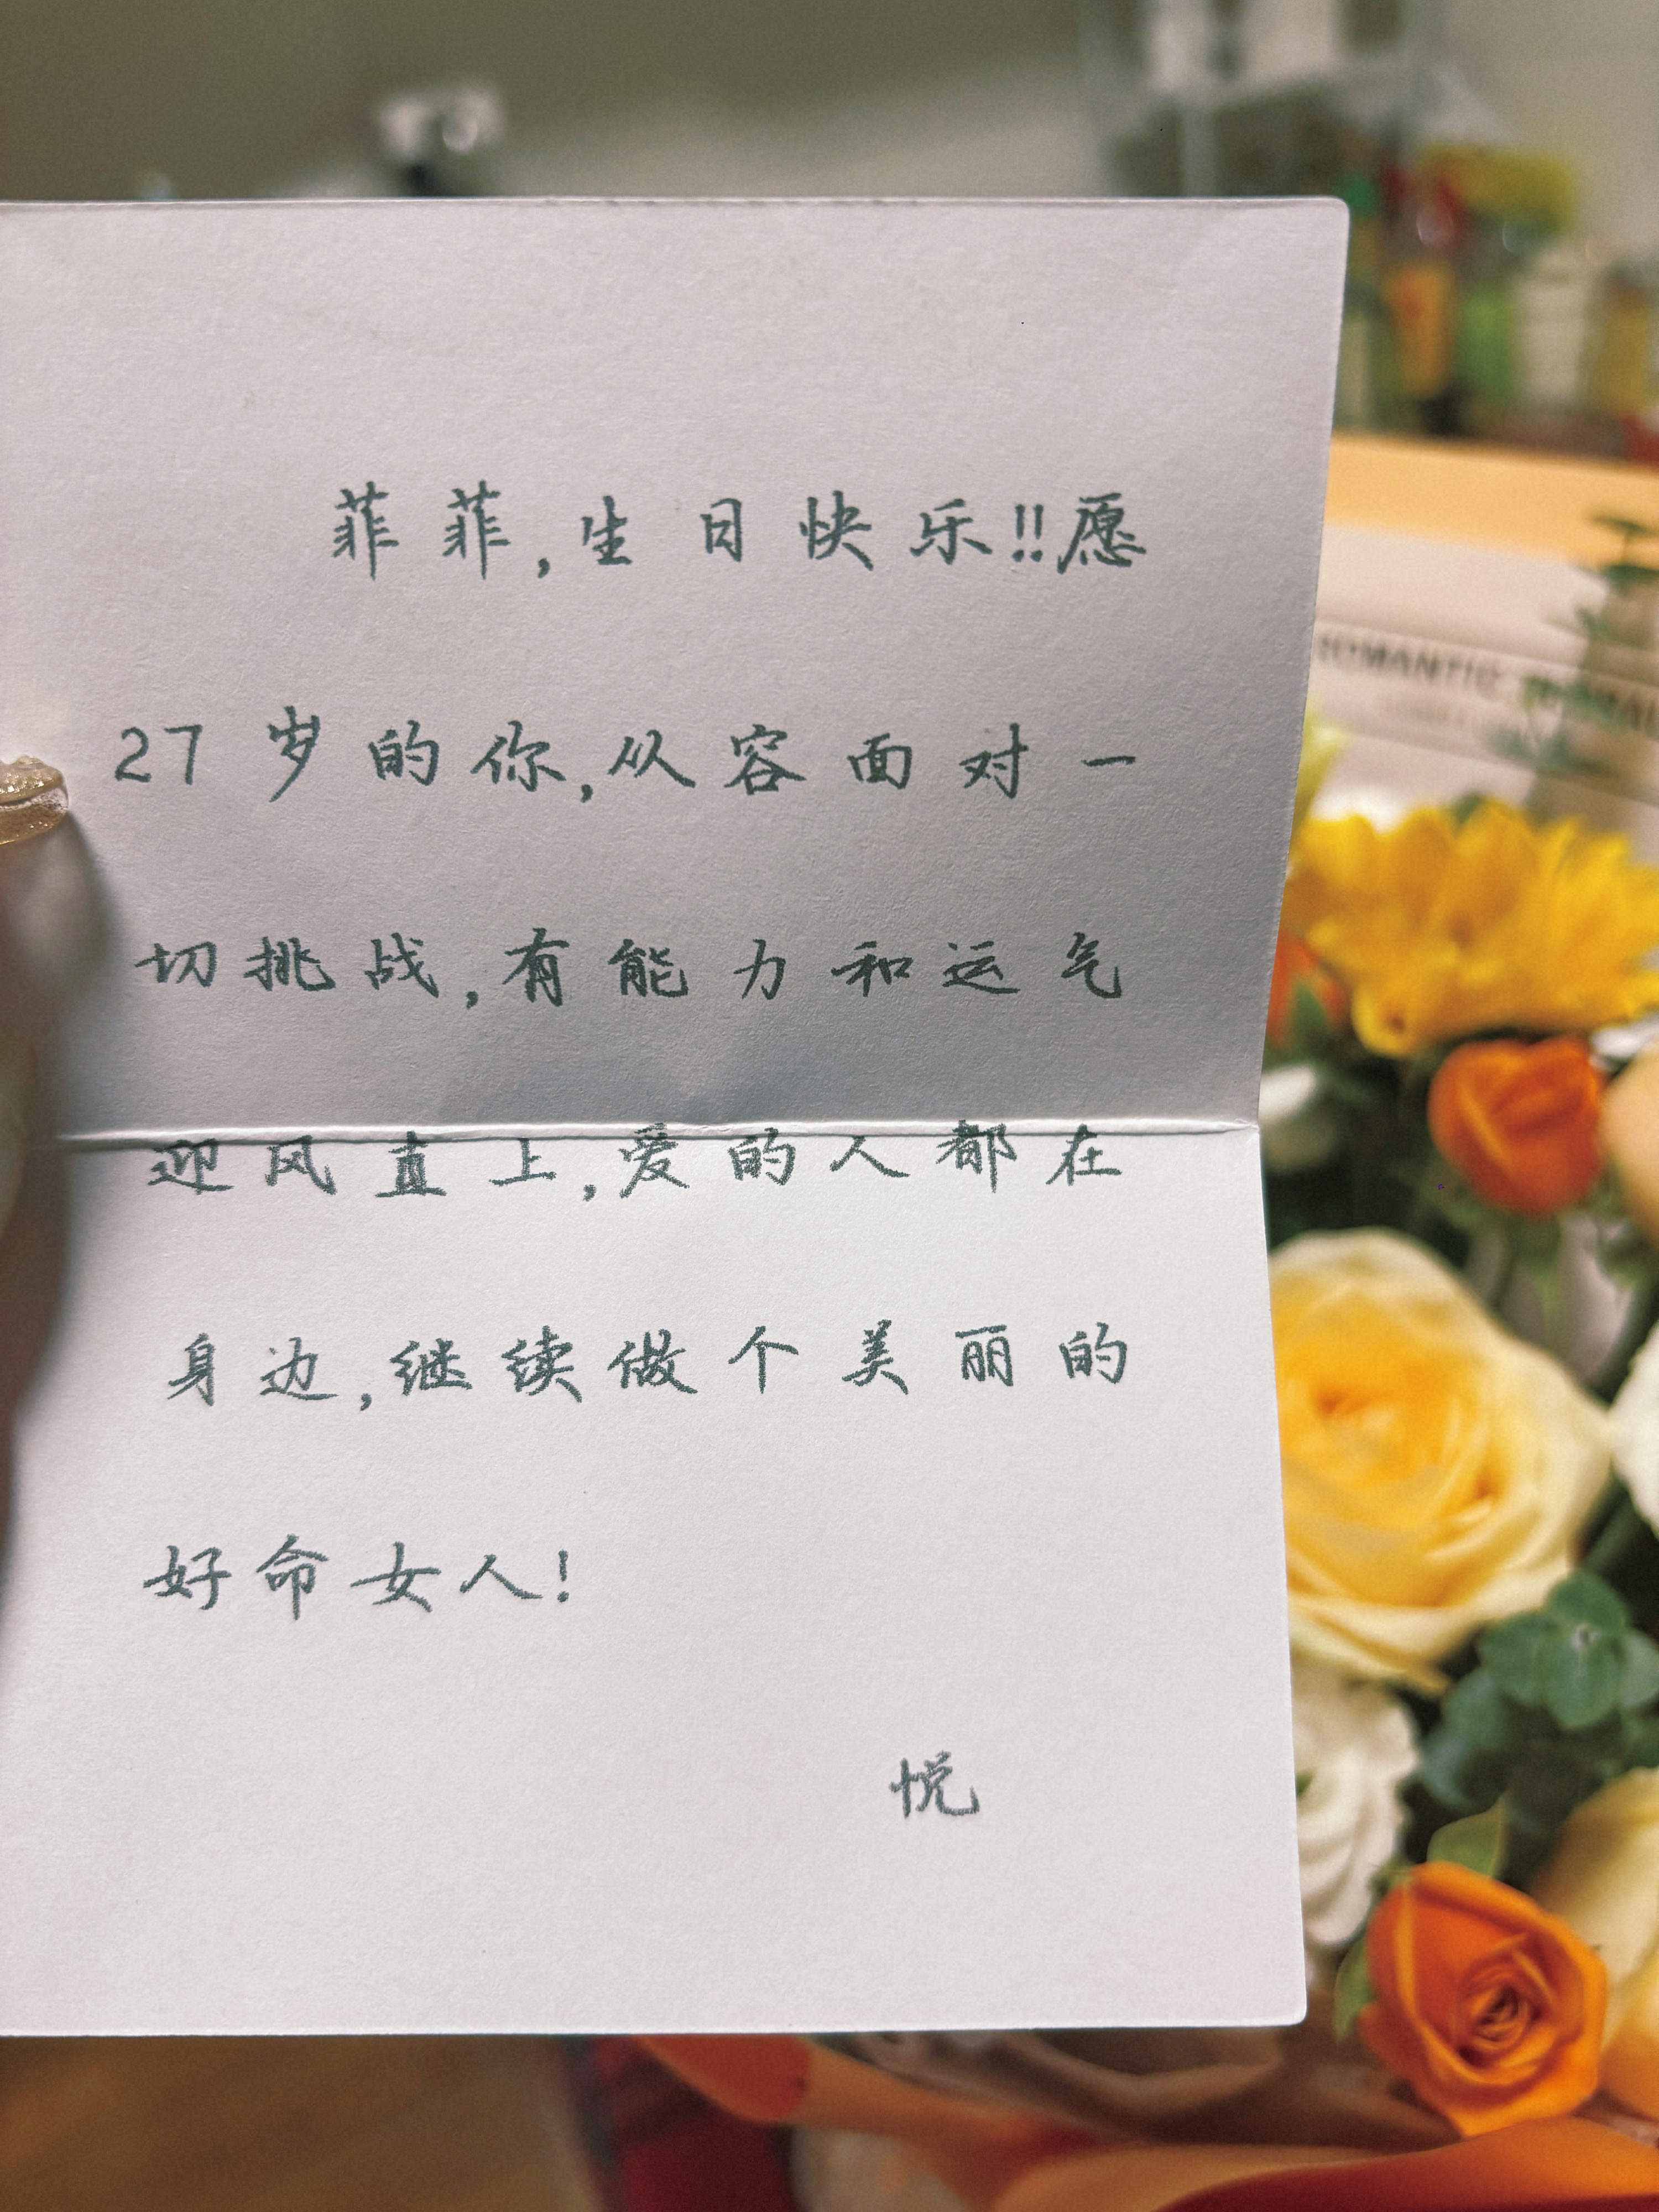 菲菲,生日快乐!!愿
27岁的你,从容面对一
切挑战,有能力和运气
迎风直上,爱的人都在
身边,继续做个美丽的
好命女人!
悦
ROMANTIC